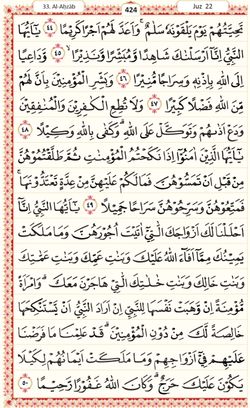 33. Al-Aḥzāb 424 Juz 22
تَحِيَّتُهُمْ يَوْمَ يَلْقَوْنَهُۥ سَلَٰمٌ ۚ وَأَعَدَّ لَهُمْ أَجْرًا كَرِيمًا ٤٤ يَٰٓأَيُّهَا
ٱلنَّبِىُّ إِنَّآ أَرْسَلْنَٰكَ شَٰهِدًا وَمُبَشِّرًا وَنَذِيرًا ٤٥ وَدَاعِيًا
إِلَى ٱللَّهِ بِإِذْنِهِۦ وَسِرَاجًا مُّنِيرًا ٤٦ وَبَشِّرِ ٱلْمُؤْمِنِينَ بِأَنَّ لَهُم
مِّنَ ٱللَّهِ فَضْلًا كَبِيرًا ٤٧ وَلَا تُطِعِ ٱلْكَٰفِرِينَ وَٱلْمُنَٰفِقِينَ
وَدَعْ أَذَىٰهُمْ وَتَوَكَّلْ عَلَى ٱللَّهِ ۚ وَكَفَىٰ بِٱللَّهِ وَكِيلًا ٤٨
يَٰٓأَيُّهَا ٱلَّذِينَ ءَامَنُوٓا۟ إِذَا نَكَحْتُمُ ٱلْمُؤْمِنَٰتِ ثُمَّ طَلَّقْتُمُوهُنَّ
مِن قَبْلِ أَن تَمَسُّوهُنَّ فَمَا لَكُمْ عَلَيْهِنَّ مِنْ عِدَّةٍ تَعْتَدُّونَهَا ۖ
فَمَتِّعُوهُنَّ وَسَرِّحُوهُنَّ سَرَاحًا جَمِيلًا ٤٩ يَٰٓأَيُّهَا ٱلنَّبِىُّ إِنَّآ
أَحْلَلْنَا لَكَ أَزْوَٰجَكَ ٱلَّٰتِىٓ ءَاتَيْتَ أُجُورَهُنَّ وَمَا مَلَكَتْ
يَمِينُكَ مِمَّآ أَفَآءَ ٱللَّهُ عَلَيْكَ وَبَنَاتِ عَمِّكَ وَبَنَاتِ عَمَّٰتِكَ
وَبَنَاتِ خَالِكَ وَبَنَاتِ خَٰلَٰتِكَ ٱلَّٰتِى هَاجَرْنَ مَعَكَ وَٱمْرَأَةً
مُّؤْمِنَةً إِن وَهَبَتْ نَفْسَهَا لِلنَّبِىِّ إِنْ أَرَادَ ٱلنَّبِىُّ أَن يَسْتَنكِحَهَا
خَالِصَةً لَّكَ مِن دُونِ ٱلْمُؤْمِنِينَ ۗ قَدْ عَلِمْنَا مَا فَرَضْنَا
عَلَيْهِمْ فِىٓ أَزْوَٰجِهِمْ وَمَا مَلَكَتْ أَيْمَٰنُهُمْ لِكَيْلَا
يَكُونَ عَلَيْكَ حَرَجٌ ۗ وَكَانَ ٱللَّهُ غَفُورًا رَّحِيمًا ٥٠